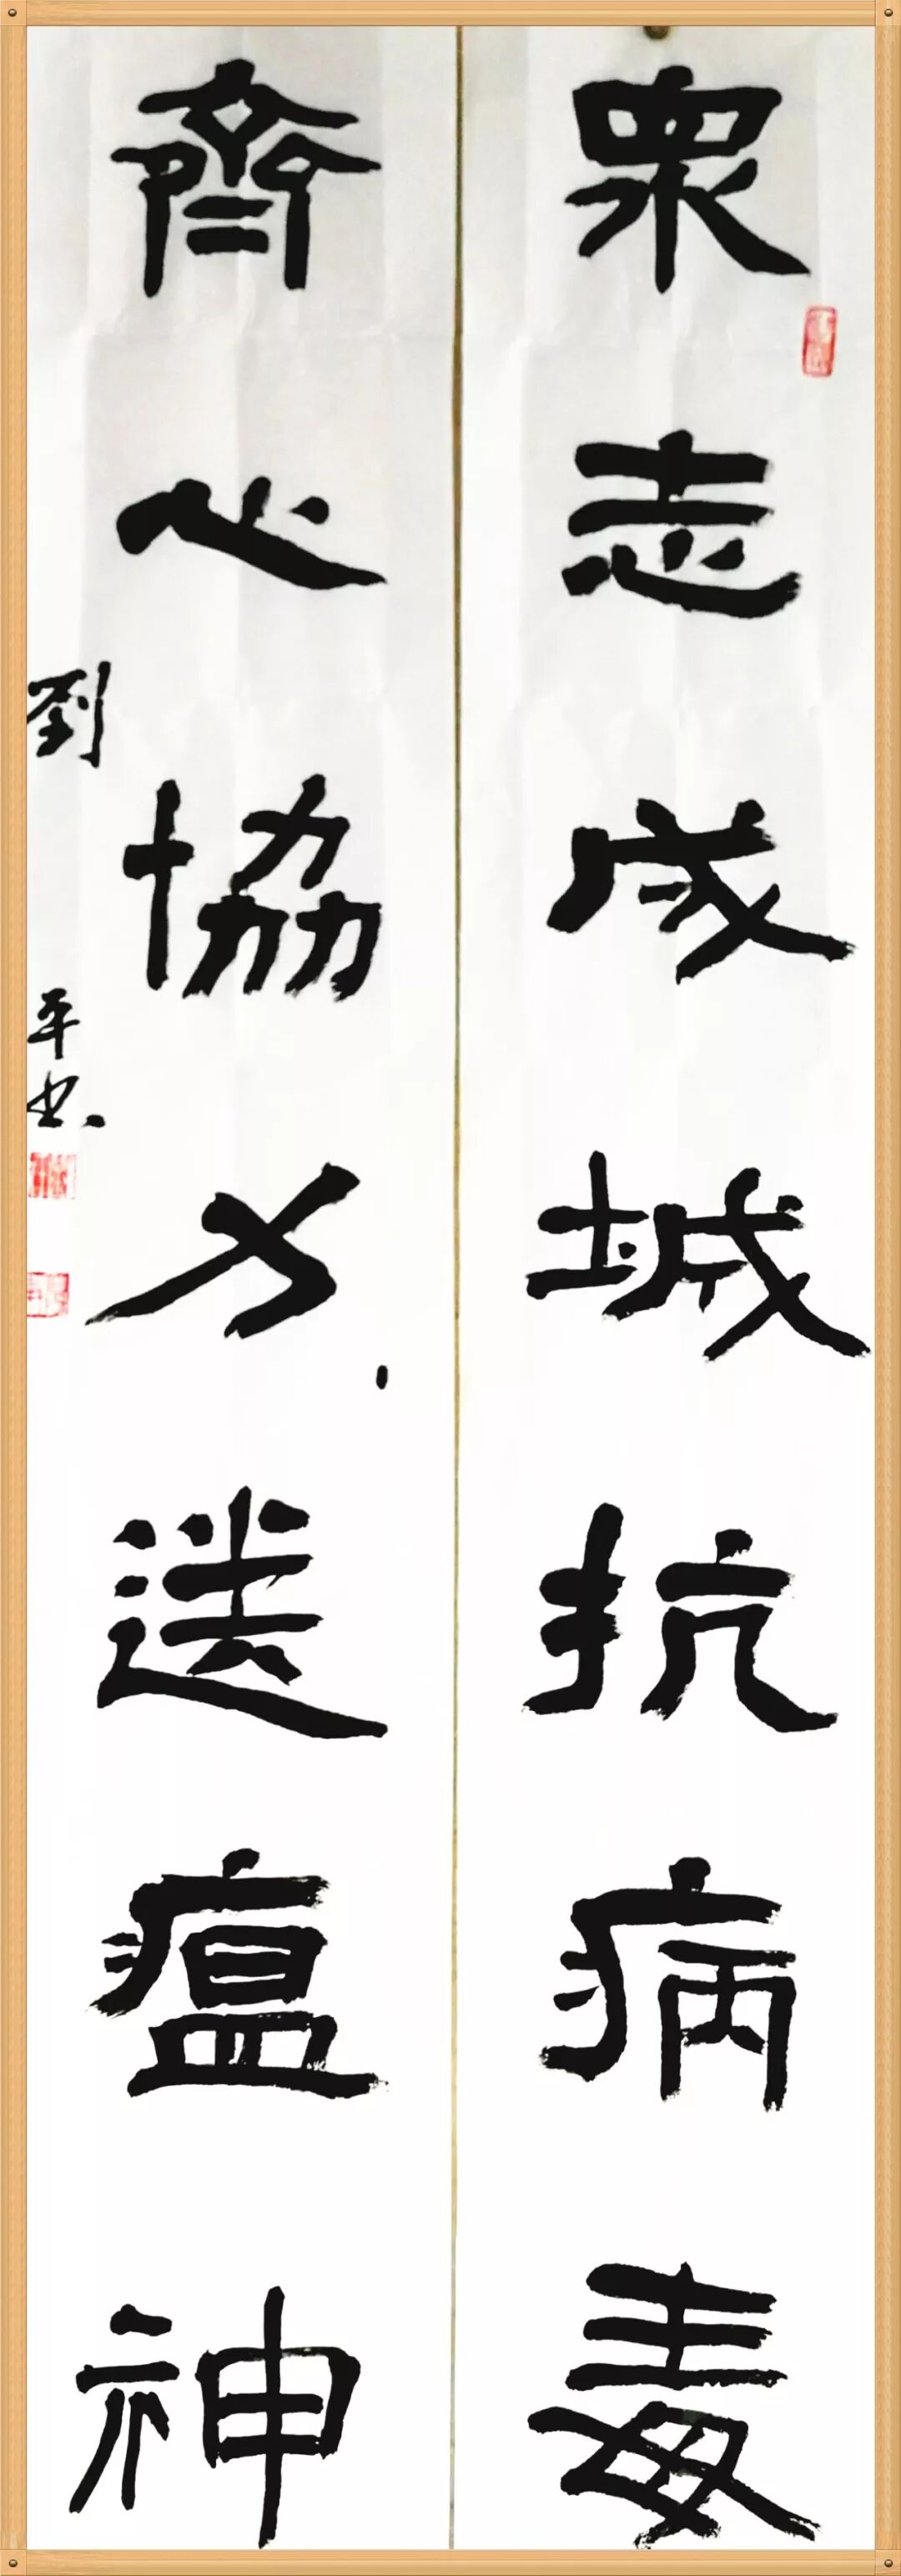 眾志成城抗病毒
齊心協力送瘟神
劉平书